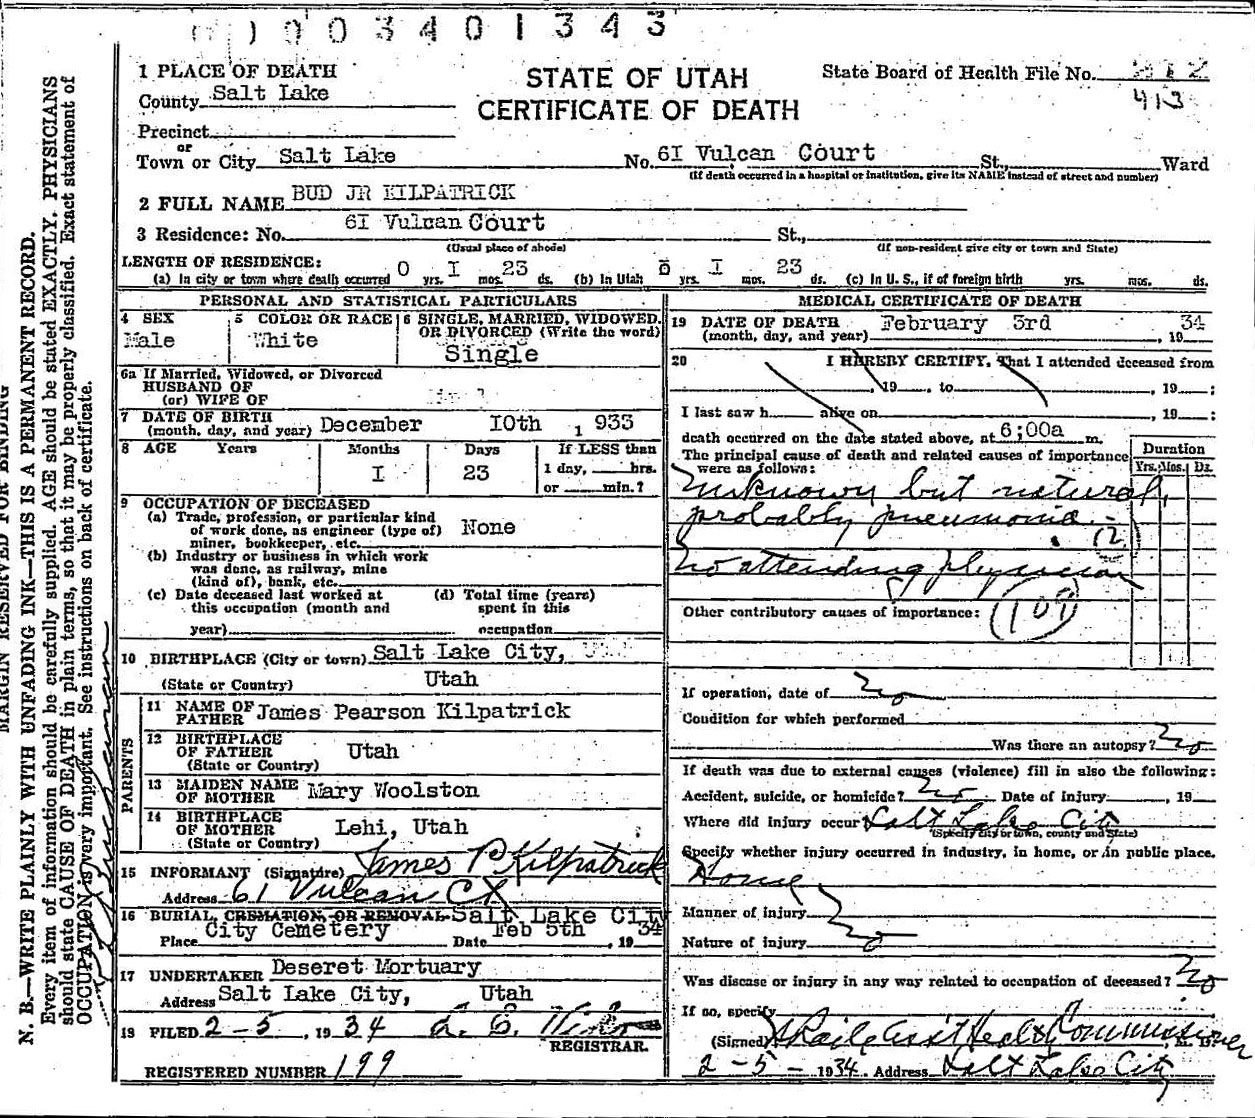 0003401343
1 PLACE OF DEATH
STATE OF UTAH
CERTIFICATE OF DEATH
State Board of Health File No.
413
County Salt Lake
Precinct
or
Town or City Salt Lake No. 6I Vulcan Court St., Ward
(If death occurred in a hospital or institution, give its NAME instead of street and number)
2 FULL NAME BUD JR KILPATRICK
3 Residence: No. 6I Vulcan Court St.,
(Usual place of abode) (If non-resident give city or town and State)
LENGTH OF RESIDENCE:
(a) In city or town where death occurred 0 yrs. I mos. 23 ds. (b) In Utah 0 yrs. I mos. 23 ds. (c) In U. S., if of foreign birth yrs. mos. ds.
PERSONAL AND STATISTICAL PARTICULARS
4 SEX
Male
5 COLOR OR RACE
White
6 SINGLE, MARRIED, WIDOWED,
OR DIVORCED (Write the word)
Single
6a If Married, Widowed, or Divorced
HUSBAND OF
(or) WIFE OF
7 DATE OF BIRTH
(month, day, and year) December I0th 1933
8 AGE Years Months Days If LESS than
I 23 1 day, hrs.
or min.?
9 OCCUPATION OF DECEASED
(a) Trade, profession, or particular kind
of work done, as engineer (type of) None
miner, bookkeeper, etc.
(b) Industry or business in which work
was done, as railway, mine
(kind of), bank, etc.
(c) Date deceased last worked at (d) Total time (years)
this occupation (month and spent in this
year) occupation
10 BIRTHPLACE (City or town) Salt Lake City,
(State or Country) Utah
PARENTS
11 NAME OF
FATHER James Pearson Kilpatrick
12 BIRTHPLACE
OF FATHER Utah
(State or Country)
13 MAIDEN NAME
OF MOTHER Mary Woolston
14 BIRTHPLACE
OF MOTHER Lehi, Utah
(State or Country)
15 INFORMANT (Signature) James P Kilpatrick
Address 61 Vulcan Ct
16 BURIAL, CREMATION, OR REMOVAL Salt Lake City
Place City Cemetery Date Feb 5th, 1934
17 UNDERTAKER Deseret Mortuary
Address Salt Lake City, Utah
18 FILED 2-5, 1934
REGISTRAR.
REGISTERED NUMBER 199
MEDICAL CERTIFICATE OF DEATH
19 DATE OF DEATH February 3rd 34
(month, day, and year) , 19
20 I HEREBY CERTIFY, That I attended deceased from
, 19 , to , 19 :
I last saw h alive on , 19 :
death occurred on the date stated above, at 6;00a m.
The principal cause of death and related causes of importance
were as follows:
Duration
Yrs. Mos. Ds.
Unknown but natural,
probably pneumonia.
No attending physician
Other contributory causes of importance:
If operation, date of No
Condition for which performed
Was there an autopsy? No
If death was due to external causes (violence) fill in also the following:
Accident, suicide, or homicide? No Date of injury , 19
Where did injury occur Salt Lake City
(Specify city or town, county and State)
Specify whether injury occurred in industry, in home, or in public place.
Home
Manner of injury
Nature of injury No
Was disease or injury in any way related to occupation of deceased? No
If so, specify
(Signed) Asst Health Commissioner M. D.
2-5-1934. Address Salt Lake City
MARGIN RESERVED FOR BINDING
N. B.—WRITE PLAINLY WITH UNFADING INK—THIS IS A PERMANENT RECORD.
Every item of information should be carefully supplied. AGE should be stated EXACTLY. PHYSICIANS
should state CAUSE OF DEATH in plain terms, so that it may be properly classified. Exact statement of
OCCUPATION is very important. See instructions on back of certificate.